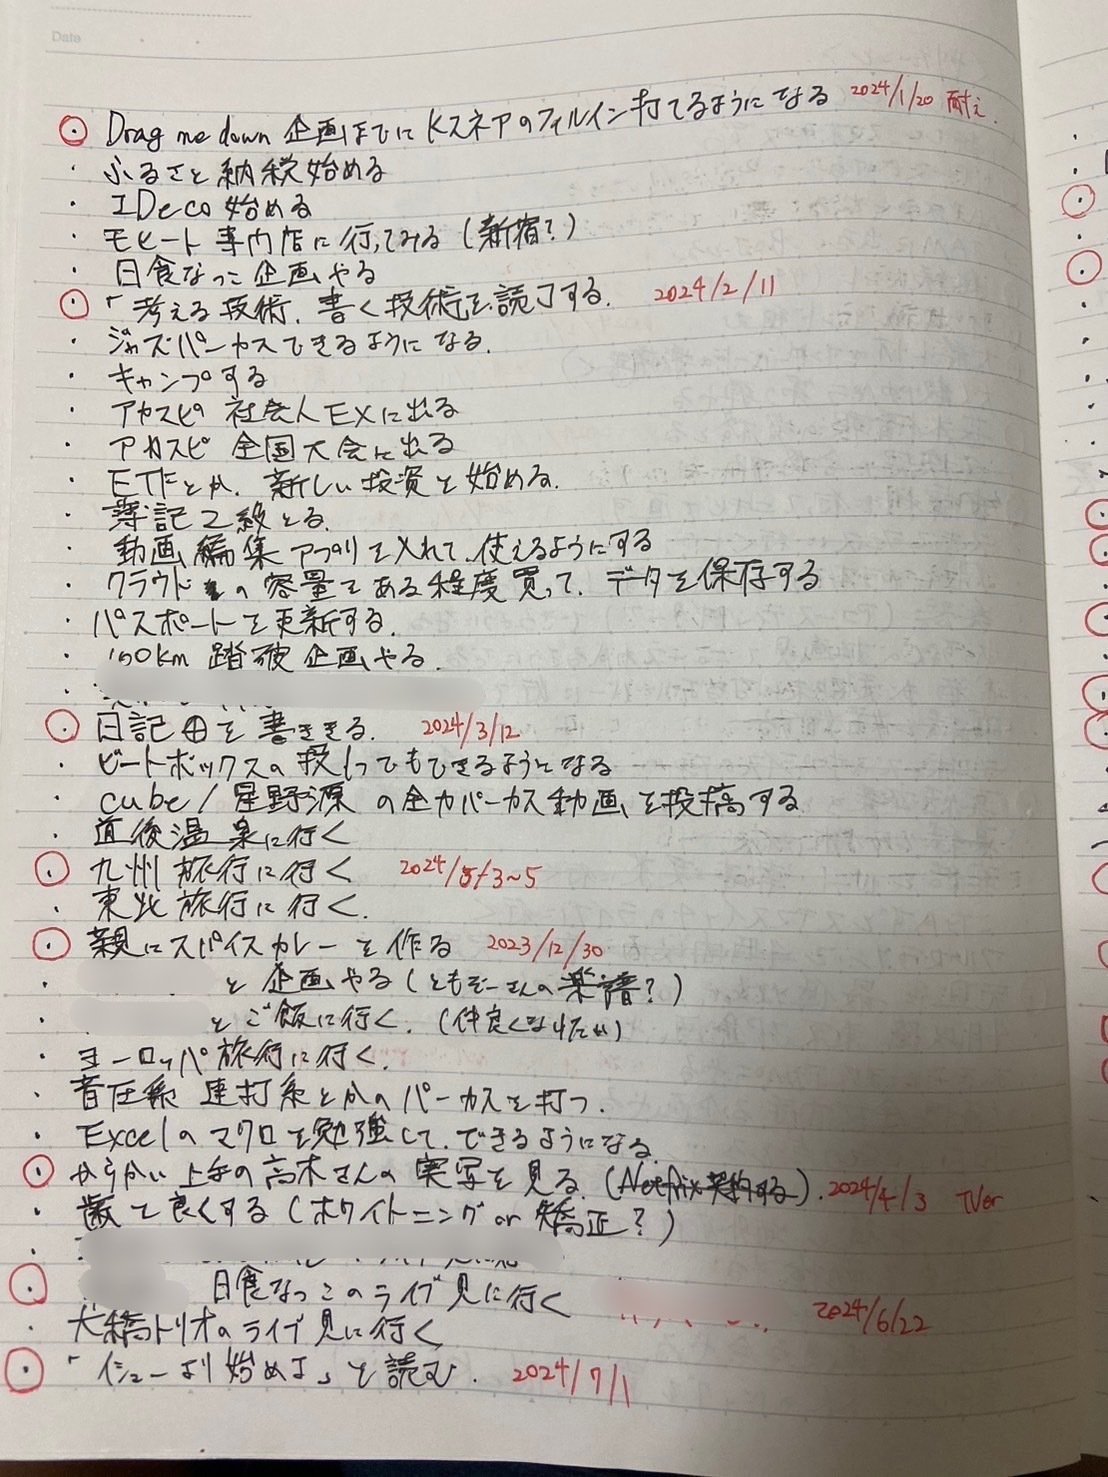 Date
・Drag me down 企画までにKスネアのフィルイン打てるようになる 2024/1/20 耐え.
・ふるさと納税始める
・IDeco始める
・モヒート専門店に行ってみる(新宿?)
・日食なつこ企画やる
・「考える技術.書く技術」を読了する. 2024/2/11
・ジャズパーカスできるようになる.
・キャンプする
・アカスピ 社会人EXに出る
・アカスピ 全国大会に出る
・ETFとか.新しい投資を始める.
・簿記2級とる.
・動画編集アプリを入れて.使えるようにする
・クラウドの容量をある程度買って.データを保存する
・パスポートを更新する.
・100km踏破企画やる.
・日記田を書ききる. 2024/3/12
・ビートボックスの技1つでもできるようになる
・cube/星野源の全カパーカス動画を投稿する
・道後温泉に行く
・九州旅行に行く 2024/5/3~5
・東北旅行に行く.
・親にスパイスカレーを作る 2023/12/30
・と企画やる(ともぞーさんの楽譜?)
・とご飯に行く.(仲良くなりたい)
・ヨーロッパ旅行に行く.
・音圧系 連打系とかのパーカスを打つ.
・Excelのマクロを勉強して.できるようになる.
・からかい上手の高木さんの実写を見る.(Netflix契約する). 2024/4/3 TVer
・歯を良くする(ホワイトニングor矯正?)
・日食なつこのライブ見に行く 2024/6/22
・大橋トリオのライブ見に行く
・「イシューより始めよ」を読む. 2024/7/1